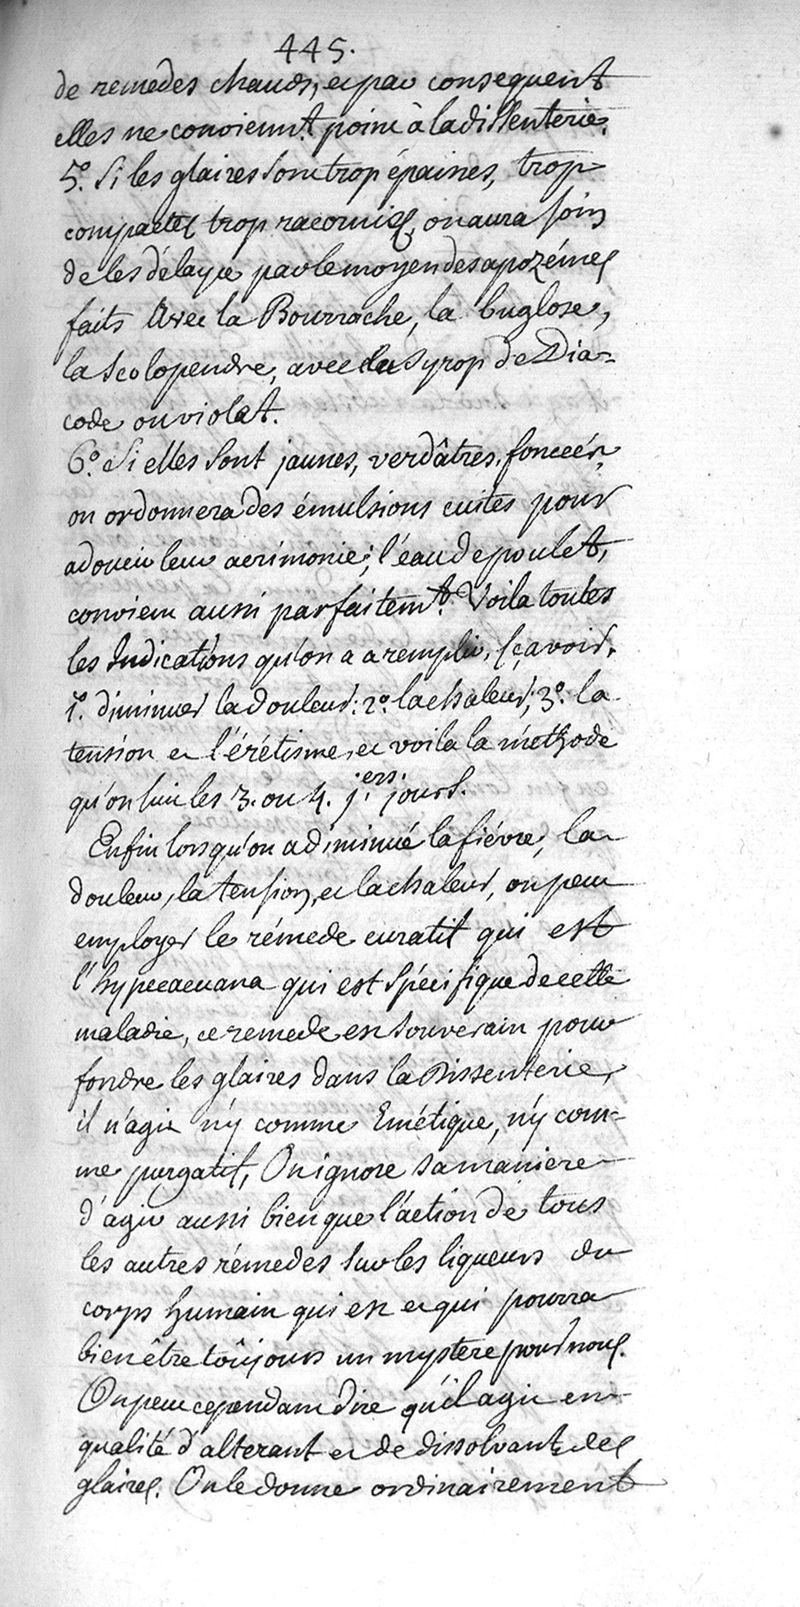 445.
de remedes chauds, et par consequent
elles ne conviennt. point à la dissenterie.
5.° Si les glaires sont trop épaisses, trop
compactes trop racornies, on aura soin
de les délayer par le moyen des apozémes
faits avec la Bourroche, la buglose,
la scolopendre, avec du syrop de Dia-
code ou violat.
6.° Si elles sont jaunes, verdâtres, foncées,
on ordonnera des émulsions cuites pour
adoucir leur acrimonie; l'eau de poulet,
convient aussi parfaitemt. Voila toutes
les Indications qu'on a a remplir, sçavoir,
1.° diminuer la douleur: 2.° la chaleur; 3.° la
tension et l'érétisme, et voila la méthode
qu'on suit les 3. ou 4. j.ers jours.
Enfin lorsqu'on a diminué la fiévre, la
douleur, la tension, et la chaleur, on peut
employer le rémede curatif qui est
l'hypecacuana qui est spécifique de cette
maladie, ce remede est souverain pour
fondre les glaires dans la Dissenterie,
il n'agit n'y comme Emétique, n'y com-
me purgatif, On ignore sa maniere
d'agir aussi bien que l'action de tous
les autres rémedes sur les liqueurs du
corps humain qui est et qui pourra
bien être toûjours un mystere pour nous.
On peut cependant dire qu'il agit en
qualité d'alterant et de dissolvant des
glaires. On le donne ordinairement